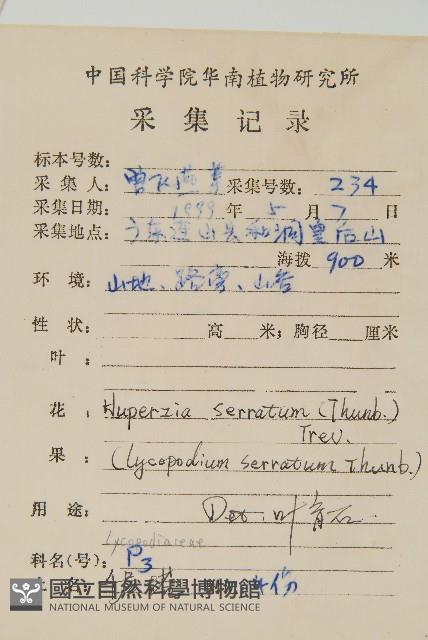 中国科学院华南植物研究所
采 集 记 录
标本号数:
采 集 人: 曾飞燕等 采集号数: 234
采集日期: 1999 年 5 月 7 日
采集地点: 广东连山共和洞皇后山
海拨 900 米
环 境: 山地、路旁、山谷
性 状: 高 米; 胸径 厘米
叶 :
花 : Huperzia serratum (Thunb.)
Trev.
果 : (Lycopodium serratum Thunb.)
用 途: Det. 叶育石
Lycopodiaceae
科名(号): P3
國立自然科學博物館
NATIONAL MUSEUM OF NATURAL SCIENCE